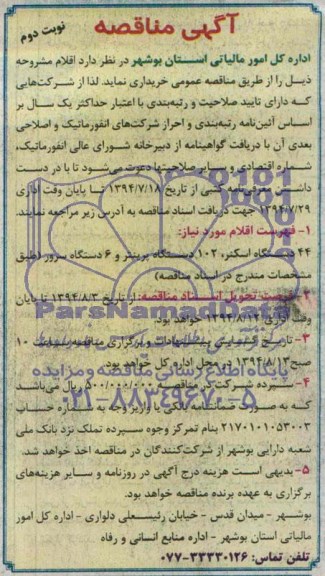 آگهی مناقصه
نوبت دوم
اداره کل امور مالیاتی استان بوشهر در نظر دارد اقلام مشروحه
ذیل را از طریق مناقصه عمومی خریداری نماید. لذا از شرکت‌هایی
که دارای تایید صلاحیت و رتبه‌بندی با اعتبار حداکثر یک سال بر
اساس آئین‌نامه رتبه‌بندی و احراز شرکت‌های انفورماتیک و اصلاحی
بعدی آن با دریافت گواهینامه از دبیرخانه شورای عالی انفورماتیک،
شماره اقتصادی و سایر صلاحیتها دعوت می‌شود تا با در دست
داشتن معرفی‌نامه کتبی از تاریخ ۱۳۹۴/۷/۱۸ تا پایان وقت اداری
۱۳۹۴/۷/۲۹ جهت دریافت اسناد مناقصه به آدرس زیر مراجعه نمایند.
۱- فهرست اقلام مورد نیاز:
۴۴ دستگاه اسکنر، ۱۰۲ دستگاه پرینتر و ۶ دستگاه سرور (طبق
مشخصات مندرج در اسناد مناقصه)
تحویل اسناد مناقصه: از تاریخ ۱۳۹۴/۸/۳ تا پایان
وقت اداری خواهد بود.
۳- تاریخ پیشنهادات و برگزاری مناقصه ساعت ۱۰
صبح ۱۳۹۴/۸/۱۳ در محل اداره کل خواهد بود.
۴- سپرده شرکت در مناقصه ۵۰۰/۰۰۰/۰۰۰ ریال می‌باشد
که به صورت ضمانتنامه بانکی یا واریز وجه به شماره حساب
۲۱۷۰۱۰۱۰۵۳۰۰۳ بنام تمرکز وجوه سپرده تملک نزد بانک ملی
شعبه دارایی بوشهر از شرکت‌کنندگان در مناقصه اخذ خواهد شد.
۵- بدیهی است هزینه درج آگهی در روزنامه و سایر هزینه‌های
برگزاری به عهده برنده مناقصه خواهد بود.
بوشهر - میدان قدس - خیابان رئیسعلی دلواری - اداره کل امور
مالیاتی استان بوشهر - اداره منابع انسانی و رفاه
تلفن تماس: ۳۳۳۳۰۱۲۶-۰۷۷
ParsNamadData
پایگاه اطلاع رسانی مناقصه و مزایده
۰۲۱-۸۸۳۴۹۶۷۰-۵